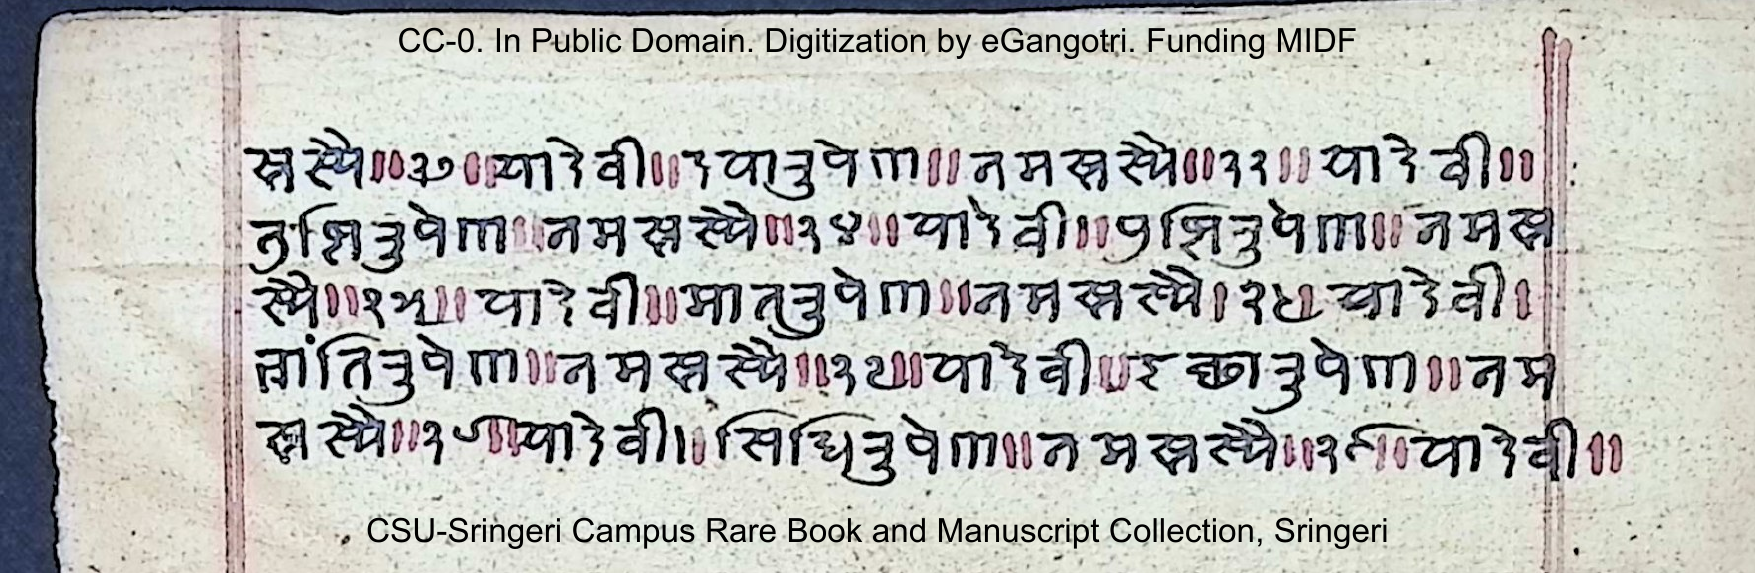 CC-0. In Public Domain. Digitization by eGangotri. Funding MIDF
स्तस्यै॥३७॥यादेवी॥दयात्रुपेण॥नमस्तस्यै॥३३॥यादेवी॥
तुष्टित्रुपेण॥नमस्तस्यै॥३४॥यादेवी॥पुष्टित्रुपेण॥नमस्त
स्यै॥३५॥यादेवी॥मातत्रुपेण॥नमस्तस्यै।३६ यादेवी।
भ्रांतित्रुपेण॥नमस्तस्यै॥३७॥यादेवी॥इच्छात्रुपेण॥नम
स्तस्यै॥३८॥यादेवी॥सिधित्रुपेण॥नमस्तस्यै॥३९॥यादेवी॥
CSU-Sringeri Campus Rare Book and Manuscript Collection, Sringeri